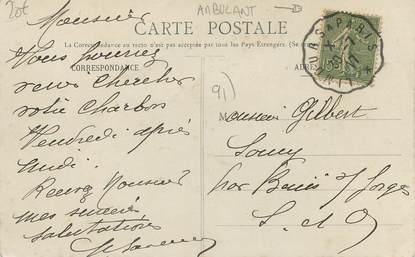 20t
AMBULANT
CARTE POSTALE
La Correspondance au recto n'est pas acceptée par tous les Pays Étrangers. (Se
CORRESPONDANCE
Monsieur
Vous pouvez
venir chercher
votre charbon
Vendredi après
midi.
Recevez Monsieur
mes sincères
salutations
91)
Monsieur Gilbert
par Briis s/ Forges
S. et O
TOURS A PARIS